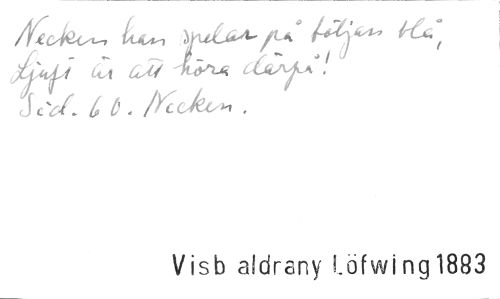 Necken han spelar på böljan blå,
Ljuft är att höra därpå!
Sid. 60. Necken.
Visb aldrany Löfwing 1883